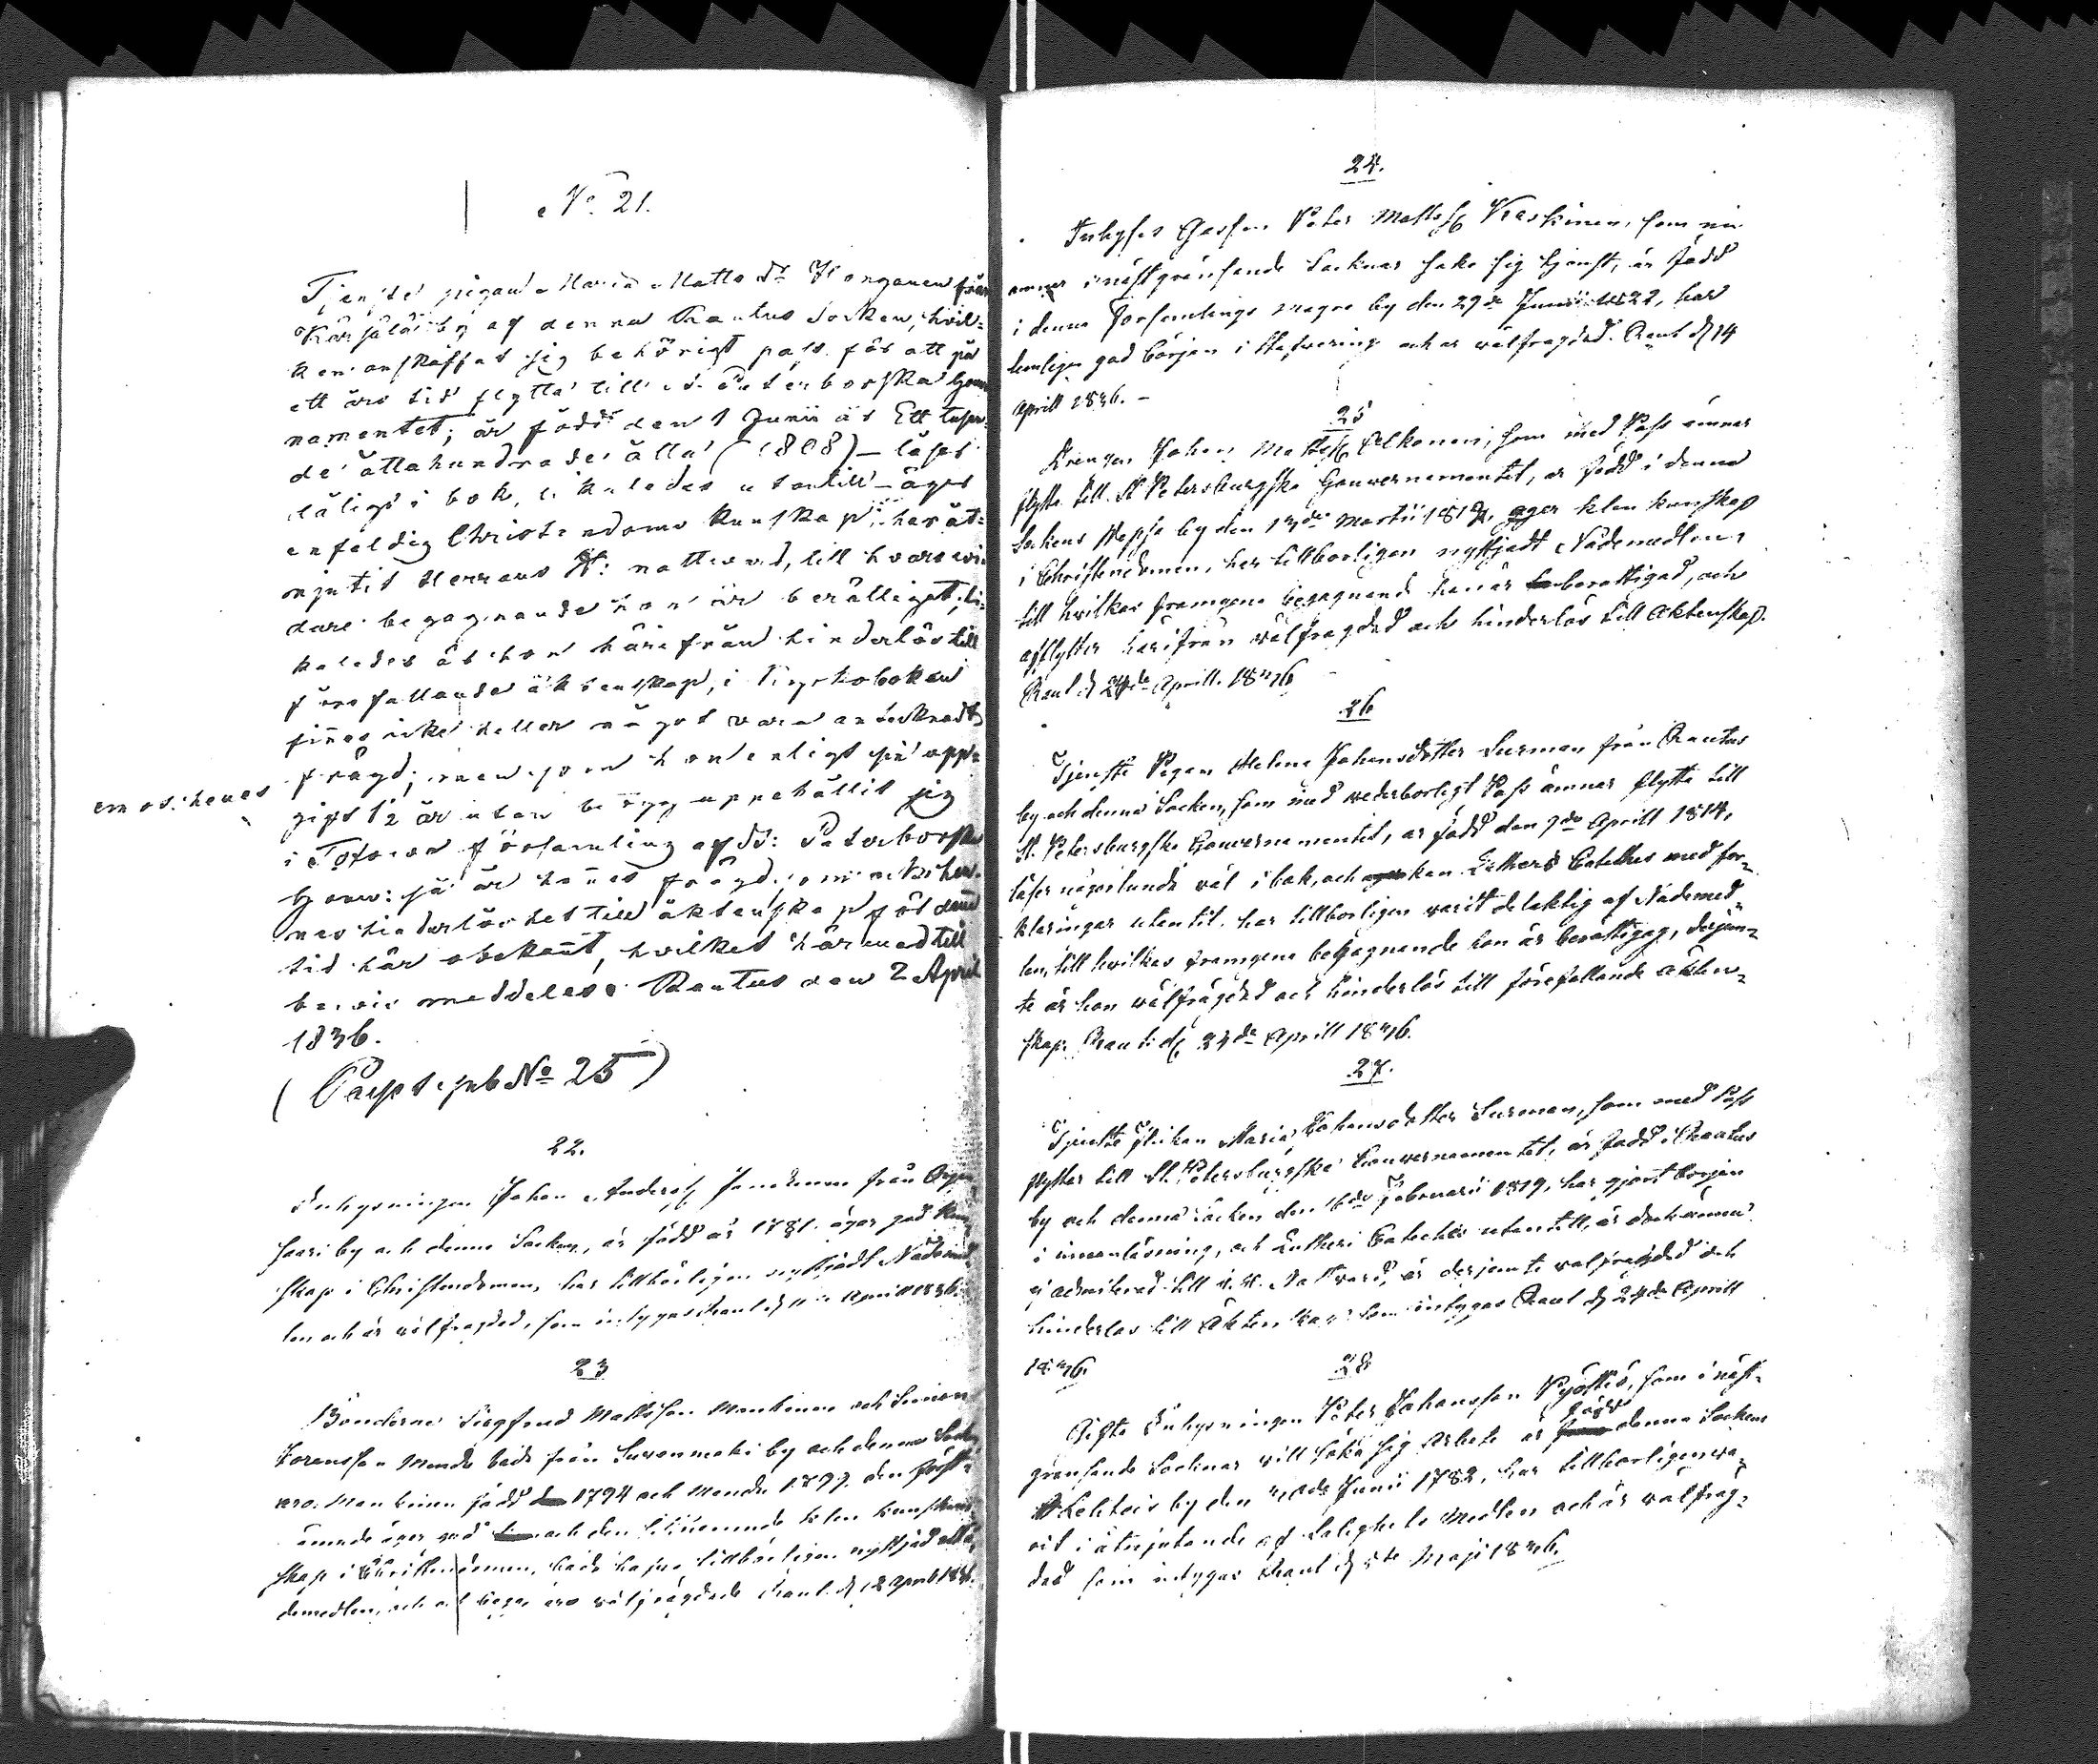 No. 21.
Tjenste pigan Maria Matts dr Hongonen från
Kärsälä by af denna Rautus Socken, hvil-
ken anskaffat sig behörigt pass för att på
ett års tid flytta till St. Peterborska Gouver
namentet; är född den 1 Junii år Ett tusen
de åttahundrade åtta (1808) – läser
dåligt i bok, likaledes utantill – äger
enfaldig Christendoms kunskap; har åt-
njutit Herrans H: nattvard, till hvars vi-
dare begagnande hon är berättigat; li-
kaledes är hon härifrån hinderlös till
förefallande äktenskap, i Kyrkoboken
finnes icke heller något vara antecknadt
frägd; men som hon enligt sin upp-
em ot: henes
gift 12 år utan betyg uppehållit sig
i Toxowa församling af St: Peterborska
Gouv: så är hennes frägd, om ock hen-
nes hinderlöshet till äktenskap för denna
tid här obekant, hvilket härmed till
bevis meddeles. Rautus den 2 April
1836.
(Passet sub No 25)
22.
Inhysningen Johan Andersson från
saari by och denna Socken, är född år 1781. äger god kun
skap i Christendomen, har tillbörligen nyttjadt Nådemed
len och är välfragdad, som intygas Raut. d 11 April 1836.
23
Bönderne Siegfred Mattsson Mankinen och Simon
Göransson båda från Suvenmäki by och denna Socken
äro. Mankinen född 1794 och 1799. den först-
ämnde äger god och den klen kunskap
skap i Christendomen, båda hafva tillbörligen nyttjad Nå
demedlen, och äro välfrägdade Raut. d 12 April 1836.
24.
Inhyses Gossen Peter Mattss Kraskinen, som nu
ämnar i nästgränsande Socknar söka sig tjenst, är född
i denna Församlings by den 29de Junii 1822, har
temligen god början i Stafvering och är välfragdad. Raut d 14
Aprill 1836. –
25
Drengen Johan Mattss Pelkonen, som med Pass ämnar
flytta till St Petersburgska Gouvernementet, är född i denna
Sockens by den 13de Martii 181, äger klen kunskap
i Christendomen, har tillborligen nyttjadt Nådemedlen,
till hvilkas framgena begagnande han är berättigad, och
afflytter härifrån välfragdad och hinderlös till Äktenskap.
Raut d 24de Aprill 1836
26
Tjenste Pigan Helena Johansdotter Surman från Rautus
by och denna Socken, som med vederborligt Pass ämnar flytta till
St. Petersburgska Gouvernementet, är född den 7de Aprill 1814,
läser någorlunda väl i bok, och kan Luthers Catekes med för-
klaringar utantil. har tillborligen varit delaktig af Nådemed-
len, till hvilkas framgena begagnande hon är berättigad, derjem-
te är hon välfrägdad och hinderlös till förefallande äkten-
skap. Raut d 24de Aprill 1836.
27.
Tjenste Flickan Maria Johansdotter Surman, som med Pass
flyttar till St. Petersburgska Gouvernementet, är född i Rautus
by och denna Socken den 16de Februarii 1819, har gjort början
i innanläsning, och Lutheri Cateches utantill, är dock ännu
ej admitterad till H. H. Nattvard, är derjemte valfragdad och
hinderlös till Äktenskap som intygas Raut d 24de Aprill
1836.
28
Gifta Inhysningen Peter Johansson Pyöttiö, som i näst-
gränsande Socknar vill söka sig Arbete är född denna Sockens
Lehtois by den Junii 1782, har tillborligen va-
rit i åtnjutande af Salighets Medlen och är valfrag-
dad som intygas Raut d 5te Maji 1836.